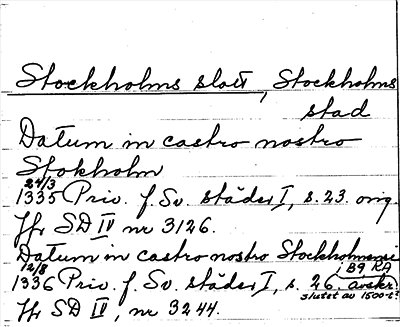 Stockholms slott, Stockholms
stad
Datum in castro nostro
Stokholm
24/3
1335 Priv. f. Sv. städer I, s. 23. orig.
Jfr SD IV nr 3126.
Datum in castro nostro Stockholmensi
12/8 , B9 RA
1336 Priv. f. Sv. städer I, s. 26. avskr.
slutet av 1500-t?
Jfr SD IV, nr 3244.